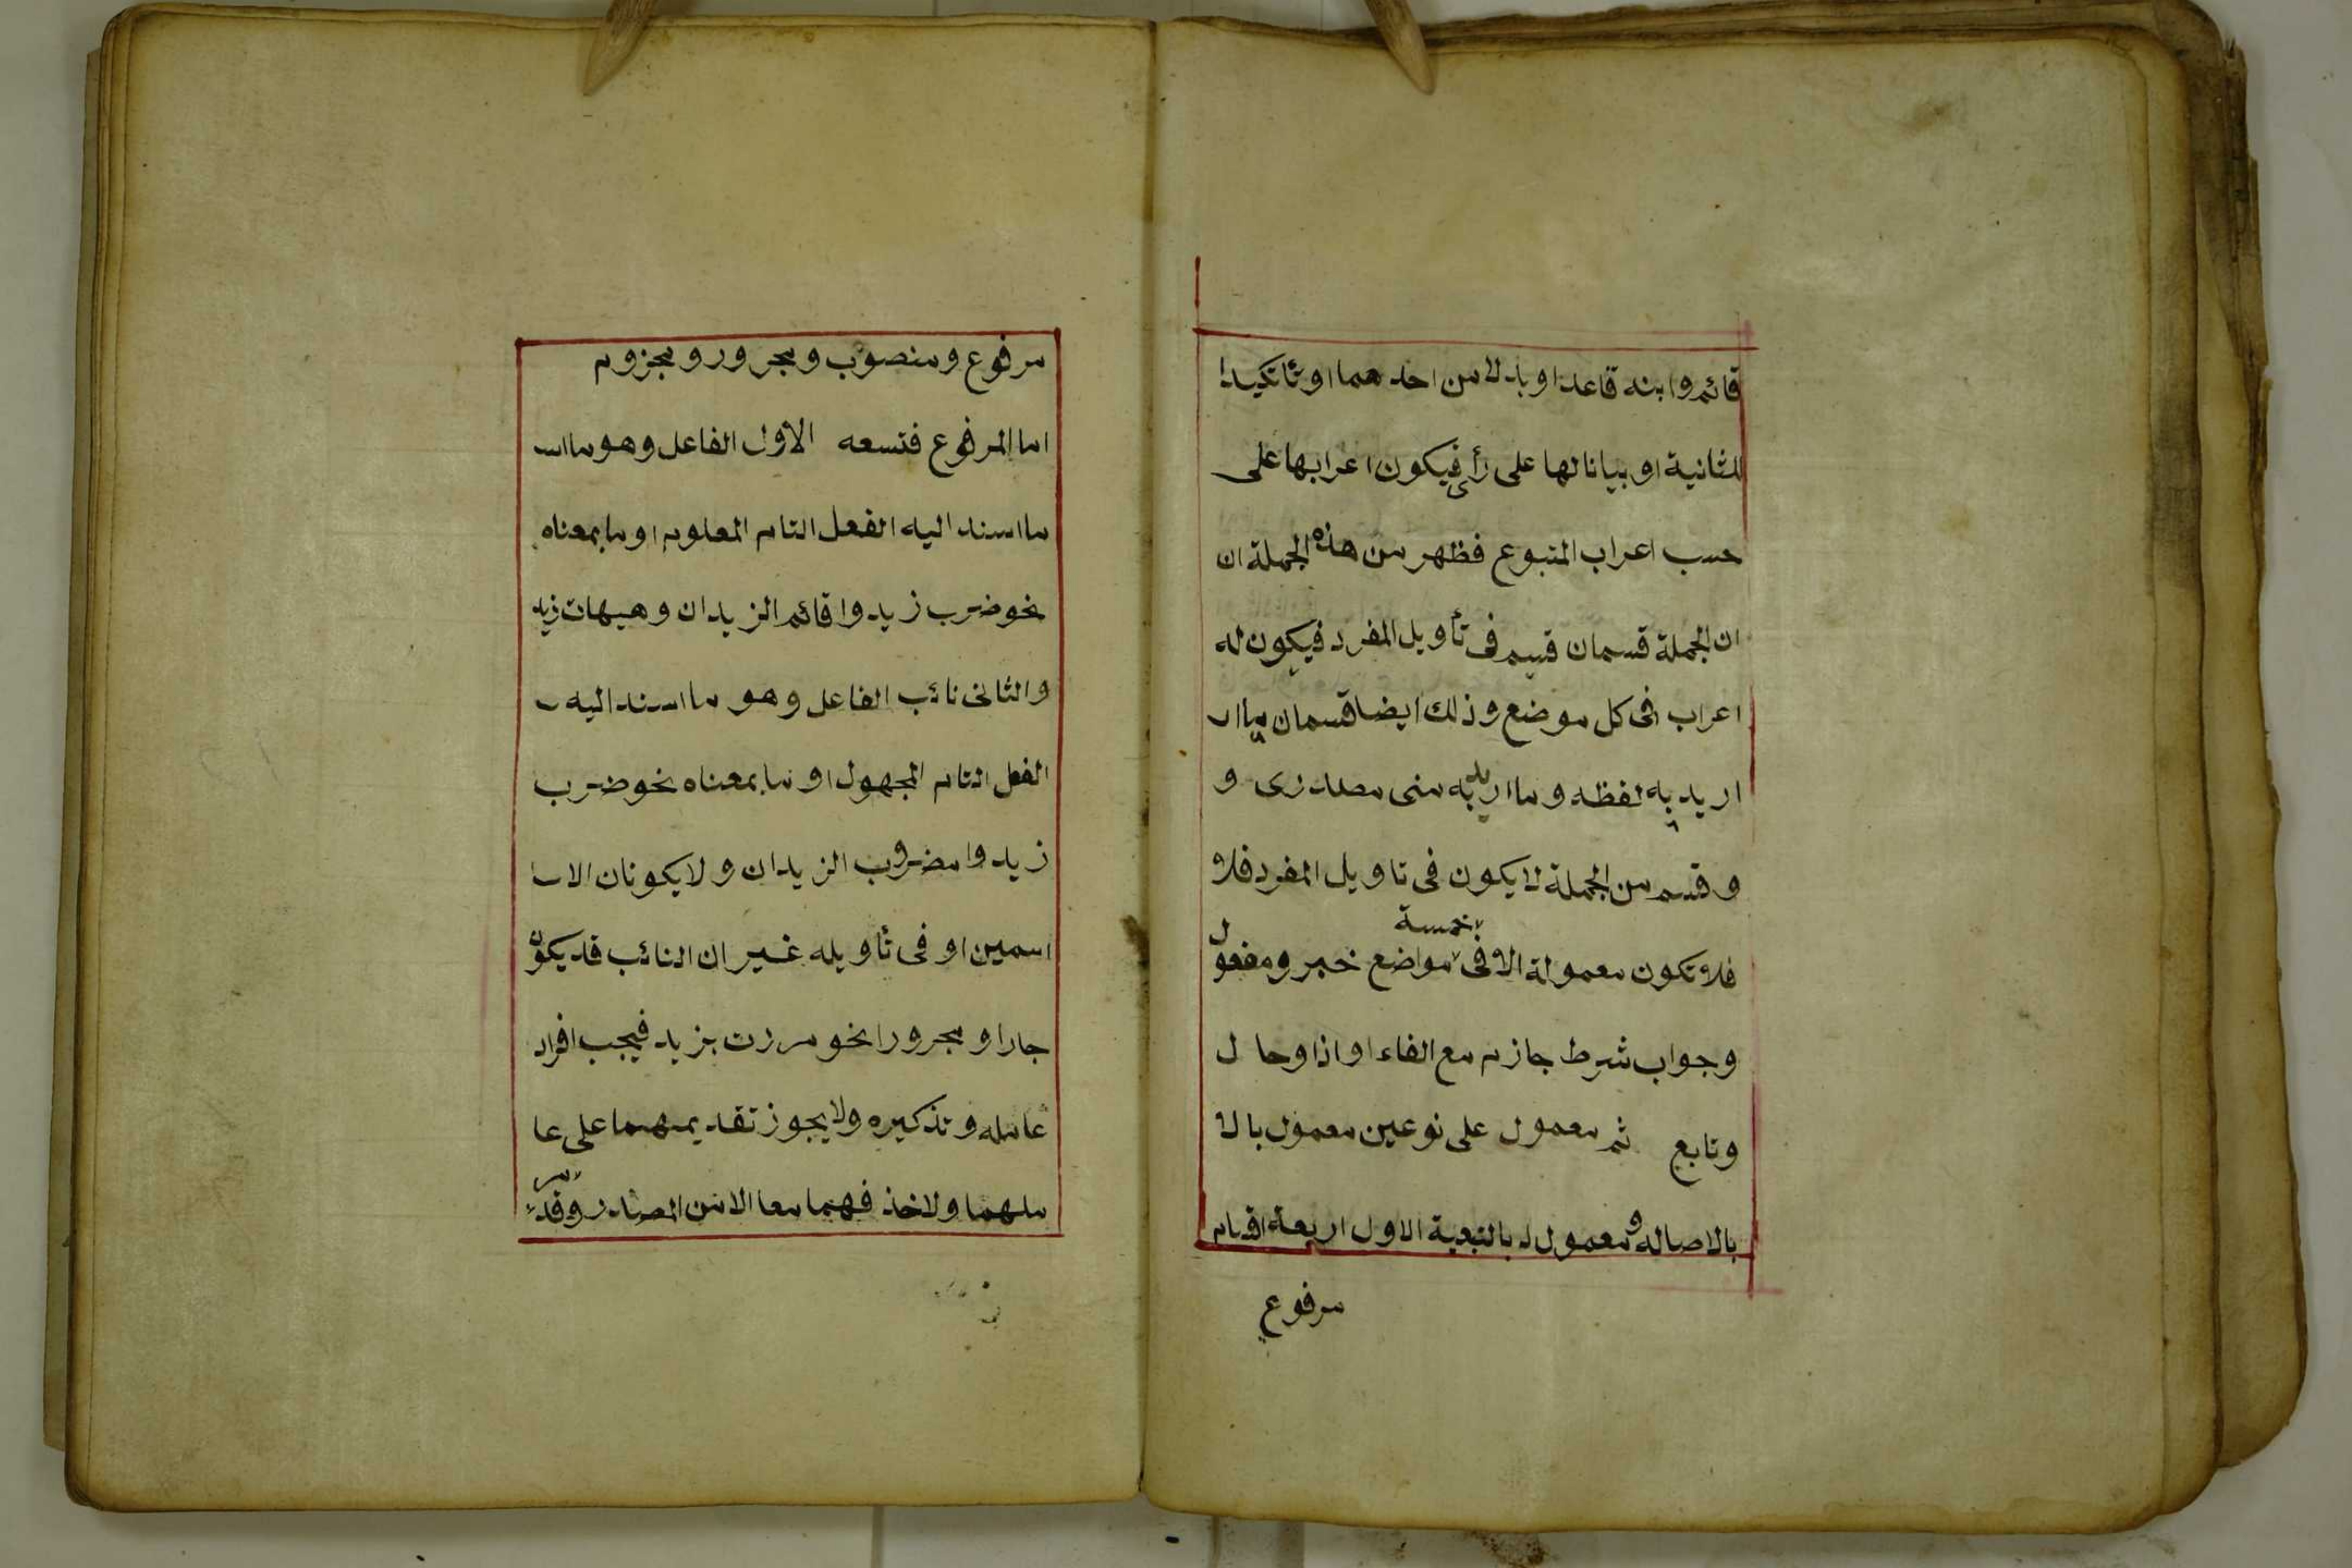 قائم وابنه قاعدا او بدلا من احدهما او تأكيدا
للثانية او بيانا لها على رأى فيكون اعرابها على
حسب اعراب المتبوع فظهر من هذه الجملة ان
ان الجملة قسمان قسم فى تأويل المفرد فيكون له
اعراب فى كل موضع وذلك ايضا قسمان ما ار
اريد به لفظه وما اريد به معنى مصدرى و
وقسم من الجملة لا يكون فى تاويل المفرد فلا
فلا تكون معمولة الا فى خمسة مواضع خبر ومفعول
وجواب شرط جازم مع الفاء او اذا وحال
وتابع ثم معمول على نوعين معمول بالا
بالاصاله و معمول بالتبعية الاول اربعة اقسام
مرفوع
مرفوع ومنصوب ومجرور ومجزوم
اما المرفوع فتسعه الاول الفاعل وهو ما اسـ
ما اسند اليه الفعل التام المعلوم او ما بمعناه
نحو ضرب زيد واقائم الزيدان وهيهات زيد
والثانى نائب الفاعل وهو ما اسند اليه
الفعل التام المجهول او ما بمعناه نحو ضرب
زيد وامضروب الزيدان ولا يكونان الا سا
اسمين او فى تأويله غير ان النائب قد يكون
جارا ومجرورا نحو مررت بزيد فيجب افراد
عامله وتذكيره ولا يجوز تقديمهما على عا
ملهما ولا حذفهما معا الا من المصدر وقد